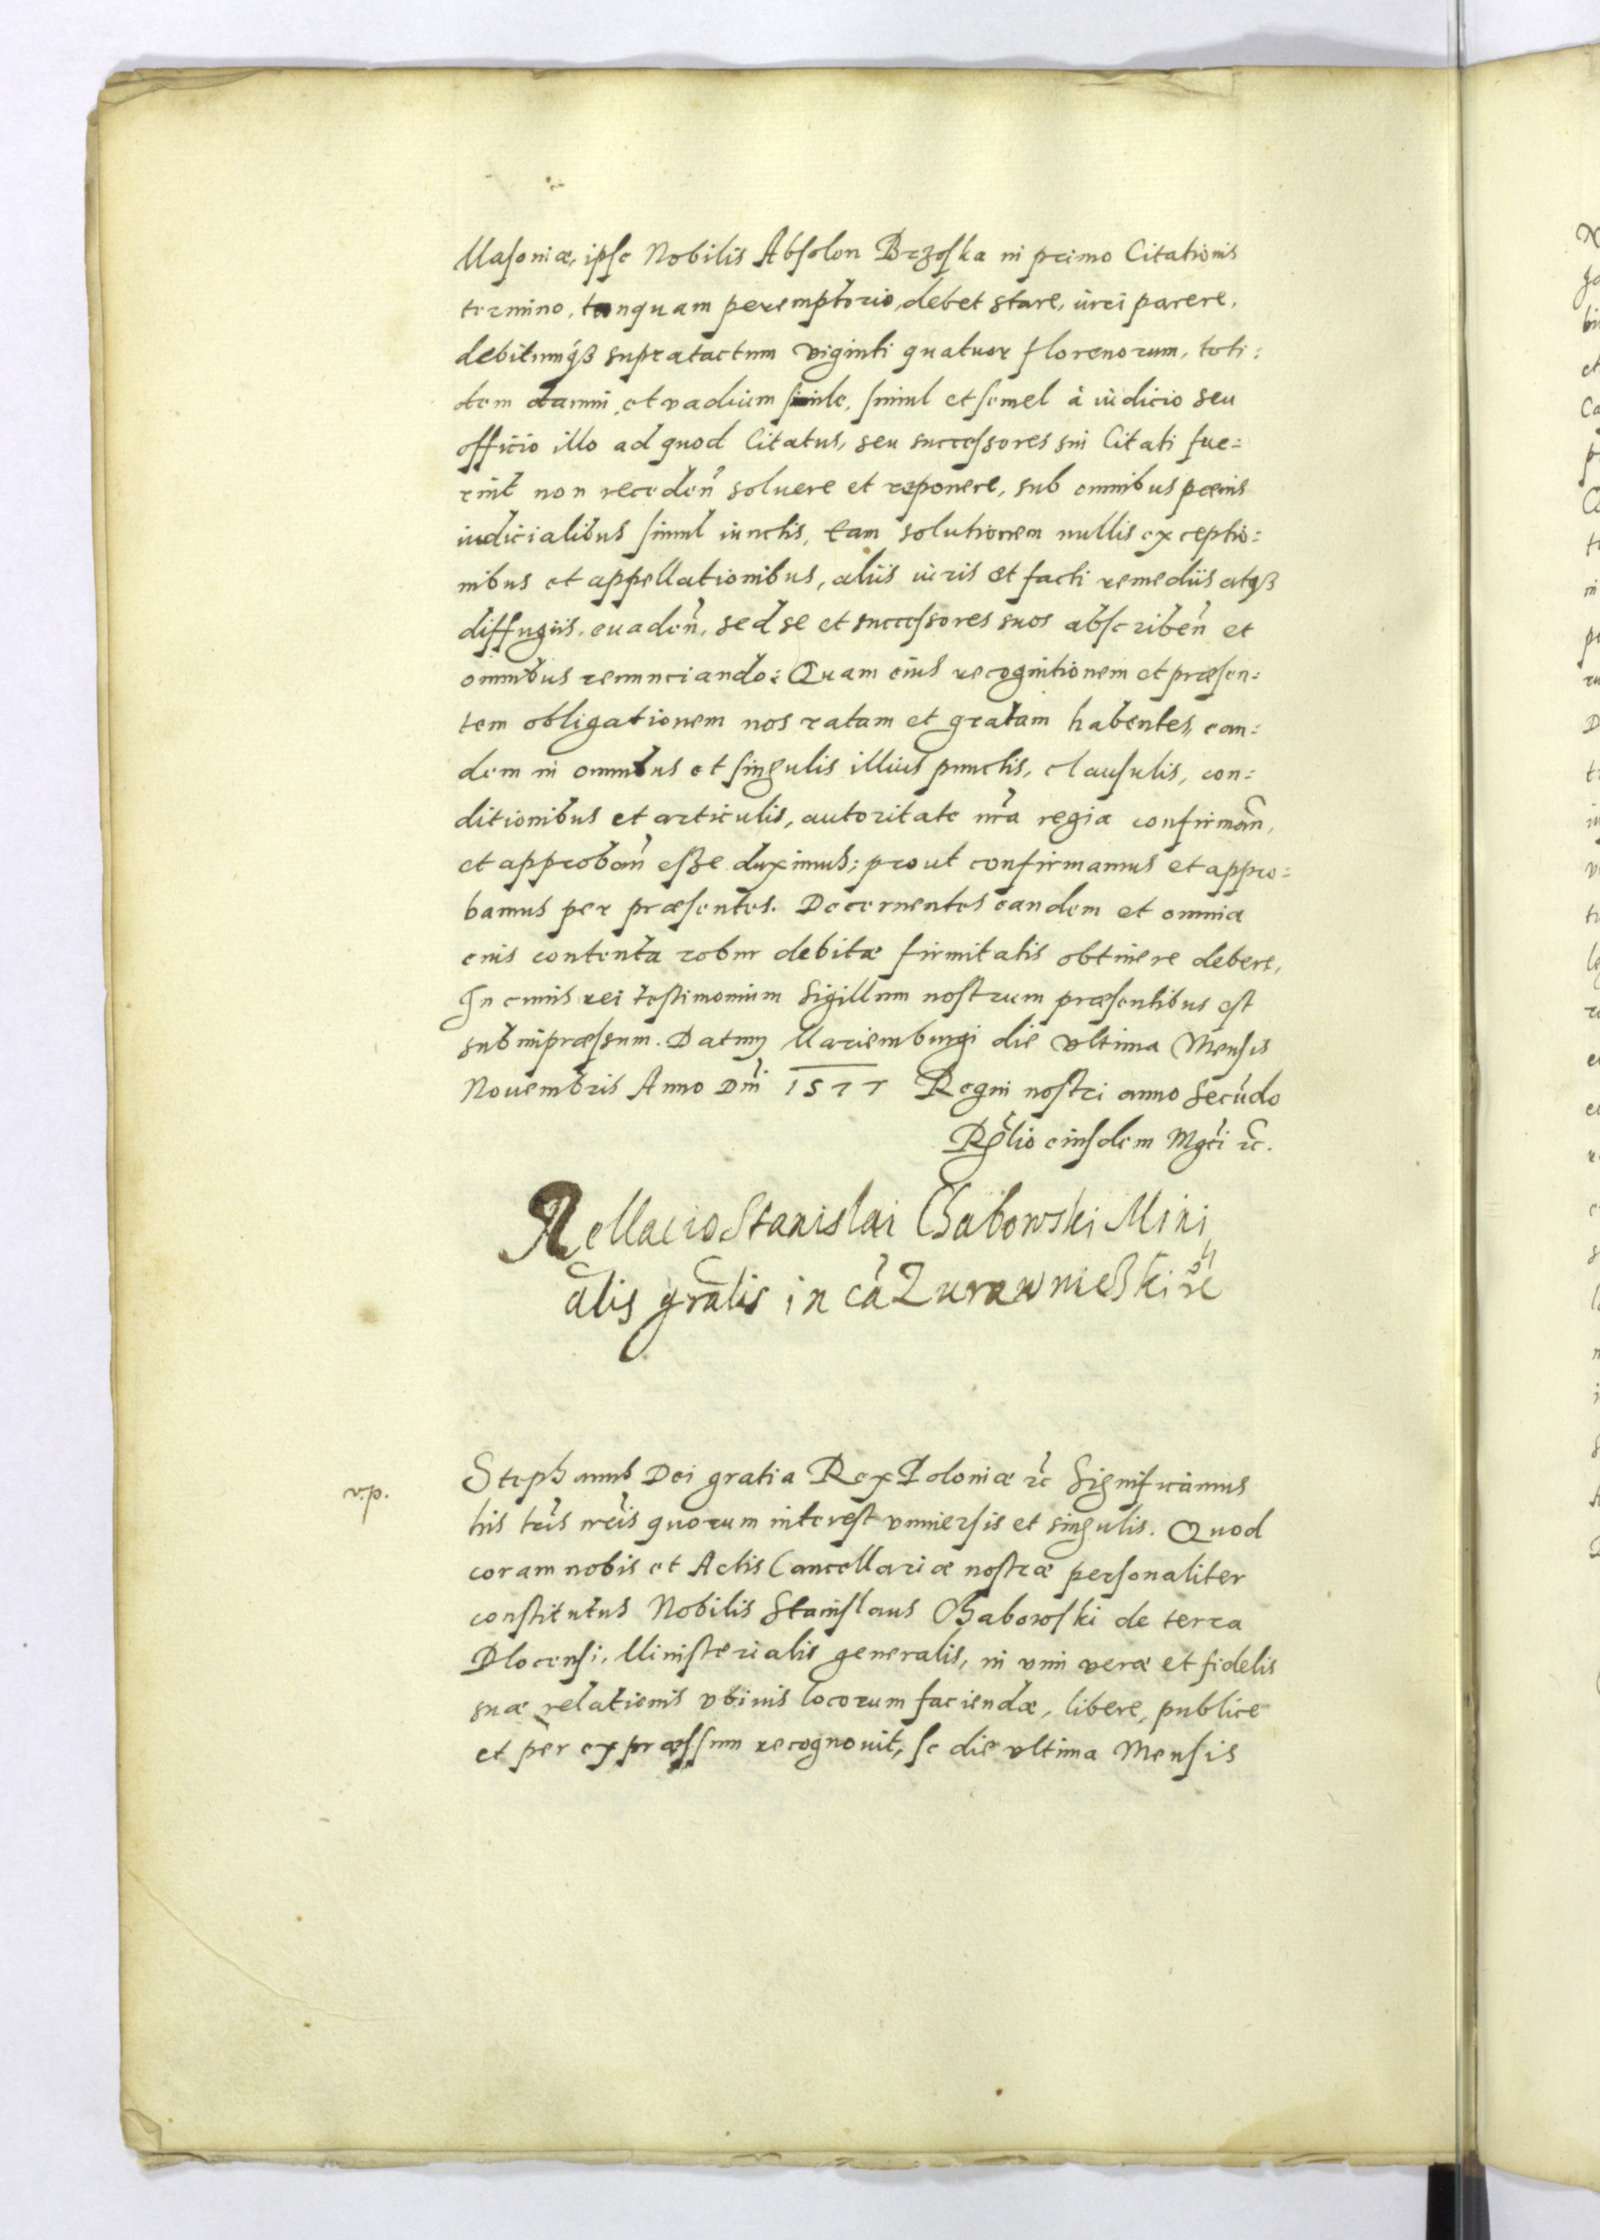 Masoniæ, ipse Nobilis Absolon Brzoska in primo Citationis
termino, tanquam peremptorio, debet stare, iuri parere,
debitumq́ꝫ supratactum viginti quatuor florenorum, toti:
dem damni, et vadium simile, simul et semel à iudicio seu
officio illo ad quod Citatus, seu successores sui Citati fue:
rint non receden̄ soluere et reponere, sub omnibus pœnis
iudicialibus simul iunctis, eam solutionem nullis exceptio:
nibus et appellationibus, aliis iuris et facti remediis atqꝫ
diffugiis, euaden̄, sed se et successores suos abscriben̄ et
omnibus renunciando: Quam eius recognitionem et præsen:
tem obligationem nos ratam et gratam habentes, ean:
dem in omnibus et singulis illius punctis, clausulis, con:
ditionibus et articulis, autoritate nr̄a regia confirman̄,
et approban̄ esse duximus; prout confirmamus et appro:
bamus per præsentes. Decernentes eandem et omnia
eius contenta robur debitæ firmitatis obtinere debere,
In cuius rei testimonium Sigillum nostrum præsentibus est
subimpræssum. Datum Mariemburgi die vltima Mensis
Nouembris Anno Dn̄i 1577 Regni nostri anno Secūdo
Rēlio eiusdem Mgci ꝛc̄.
Rellacio Stanislai Gabowski Mini
ālis grālis in cā Zurawnieski
v.p.
Stephanus Dei gratia Rex Poloniæ ꝛc̄ Significamus
his lr̄is nr̄is quorum interest vniuersis et singulis. Quod
coram nobis et Actis Cancellariæ nostræ personaliter
constitutus Nobilis Stanislaus Gabowski de terra
Plocensi, Ministerialis generalis, in vim veræ et fidelis
suæ relationis vbiuis locorum faciendæ, libere, publice
et per expræssum recognouit, se die vltima Mensis